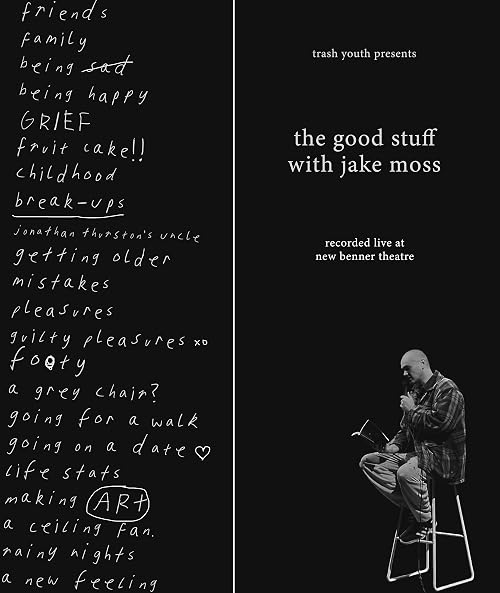 friends
family
being sad
being happy
GRIEF
fruit cake!!
childhood
break-ups
jonathan thurston's uncle
getting older
mistakes
pleasures
guilty pleasures xo
footy
a grey chair?
going for a walk
going on a date ♡
life stats
making ART
a ceiling fan.
rainy nights
a new feeling
trash youth presents
the good stuff
with jake moss
recorded live at
new benner theatre